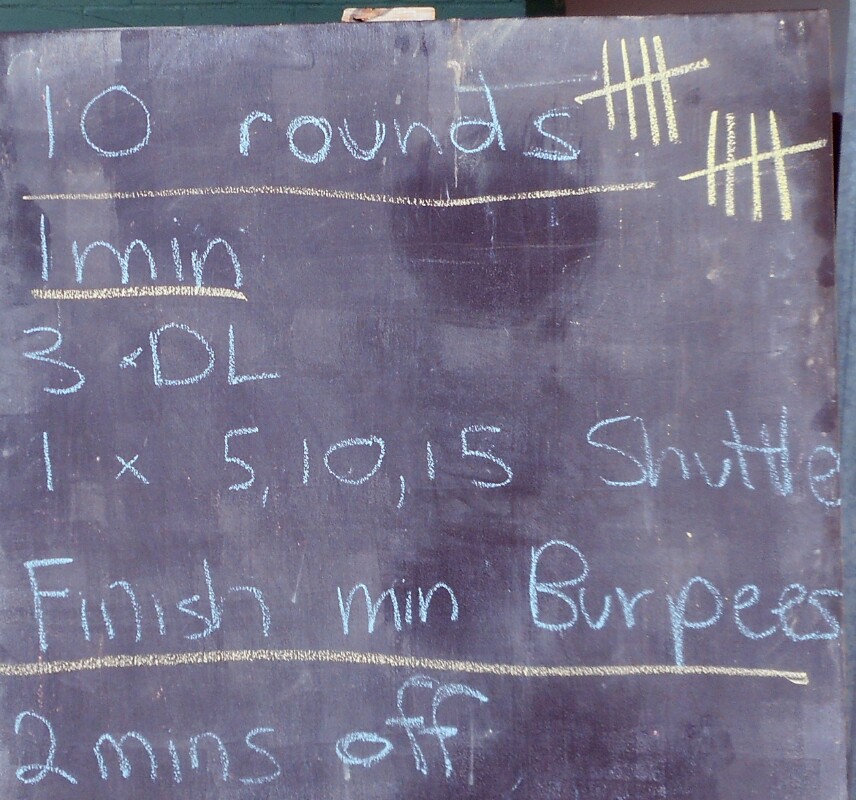 10 rounds
1 min
3 × DL
1 × 5, 10, 15 Shuttle
Finish min Burpees
2 mins off